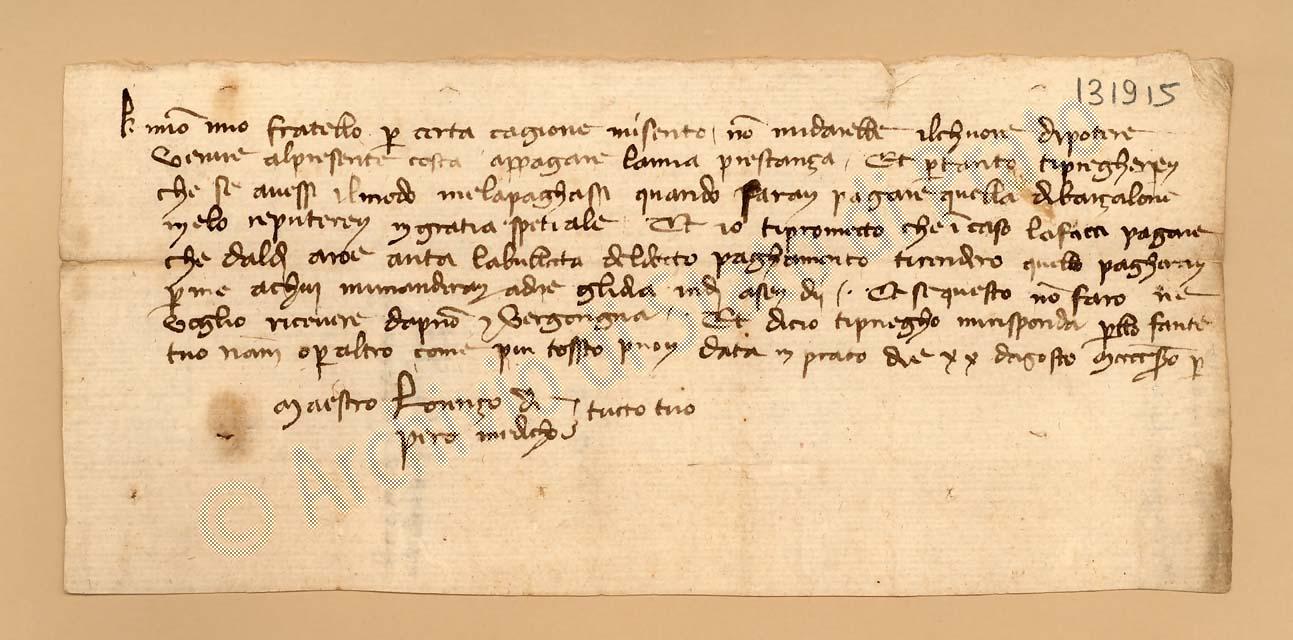 131915
K[arissi]mo mio fratello p[er] certa cagione misento, nō midarebbe ilchuore dipotere
Venire alpresente costa appagare lamia prestança. Et p[er]tanto tipregherey
che se avessi ilmodo melapaghassi quando faray pagare quella dibarçalone
yelo reputerey ingratia spetiale. Et io tiprometto che ī caso lafacci pagare
che daldj aroe auta labulletta deldetto paghamento tirendero quello pagheray
p[er] me achuj mimanderay adire glidia
Et sequesto nō faro ne
Voglio ricevere dapno e Vergongna. Et dicio tipriegho mirisponda p[er]llo fante
tuo op[er] altro come piu tossto puoy data in prato die xx dagosto
Maestro Lorenço di
tutto tuo
piro medicho
© Archivio di Stato di Prato